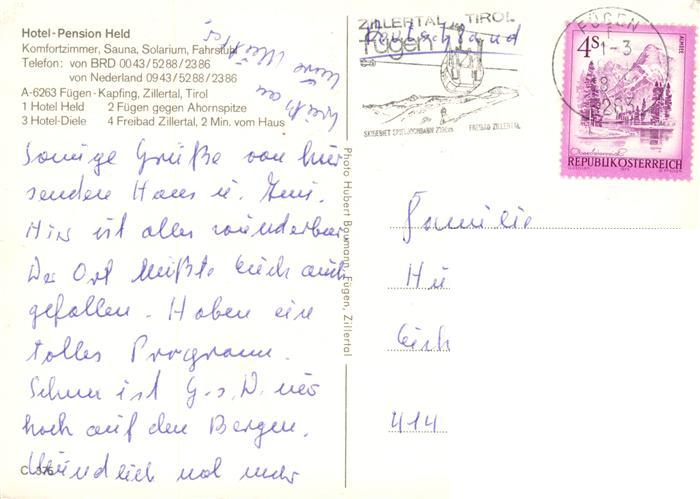 Hotel-Pension Held
Komfortzimmer, Sauna, Solarium, Fahrstuhl
Telefon: von BRD 0043/5288/2386
von Nederland 0943/5288/2386
A-6263 Fügen-Kapfing, Zillertal, Tirol
1 Hotel Held 2 Fügen gegen Ahornspitze
3 Hotel-Diele 4 Freibad Zillertal, 2 Min. vom Haus
Sonnige Grüße von hier
senden Hans u.
Hier ist alles wunderbar
Der Ort müßte Euch auch
gefallen. Haben ein
tolles Programm.
Schnee ist G.s.D. nur
hoch auf den Bergen.
Mündlich mal mehr
C 375
Photo Hubert Baumann, Fügen, Zillertal
ZILLERTAL TIROL
Fügen
Deutschland
SKIGEBIET SPIELJOCHBAHN FREIBAD ZILLERTAL
FÜGEN
4S
ALMSEE
REPUBLIK ÖSTERREICH
Familie
Hu
Eich
414